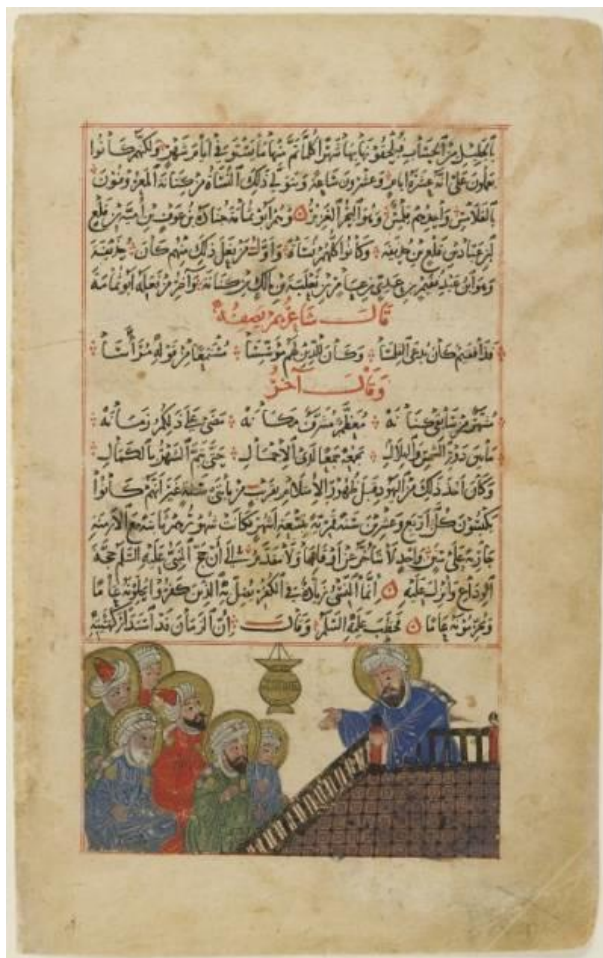 بالجليل من الحساب فيلحقونها بها شهرا كلما تم منها ما يستوفي ايام شهر ولكنهم كانوا
يعملون على انه عشرة ايام وعشرون ساعة ويتولى ذلك النسأة من كنانة المعروفون
بالقلامس واحدهم قلمس وهو البحر الغزير وهم ابو ثمامة جنادة بن عوف بن امية بن قلع
بن عباد بن قلع بن حذيفة وكانوا كلهم نسأة واول من فعل ذلك منهم كان حذيفة
وهو ابن عبد فقيم بن عدي بن عامر بن ثعلبة بن مالك بن كنانة وآخر من فعله ابو ثمامة
قال شاعرهم يصفه
فذا فقيم كان يدعى القلمسا وكان للدين لهم مؤسسا مستمعا من قوله مرأسا
وقال آخر
مشهر من سابقي كنانه معظم مشرف مكانه مضى على ذلكم زمانه
ما بين دور الشمس والهلال يجمعه جمعا لدى الاجمال حتى يتم الشهر بالكمال
وكان اخذ ذلك من اليهود قبل ظهور الاسلام بقريب من مائتي سنة غير انهم كانوا
يكبسون كل اربع وعشرين سنة قمرية بتسعة اشهر فكانت شهورهم ثابتة مع الازمنة
جارية على سنن واحد لا تتأخر عن اوقاتها ولا تتقدم الى ان حج النبي عليه السلم حجة
الوداع وانزل عليه انما النسئ زيادة في الكفر يضل به الذين كفروا يحلونه عاما
ويحرمونه عاما فخطب عليه السلم وقال ان الزمان قد استدار كهيئته